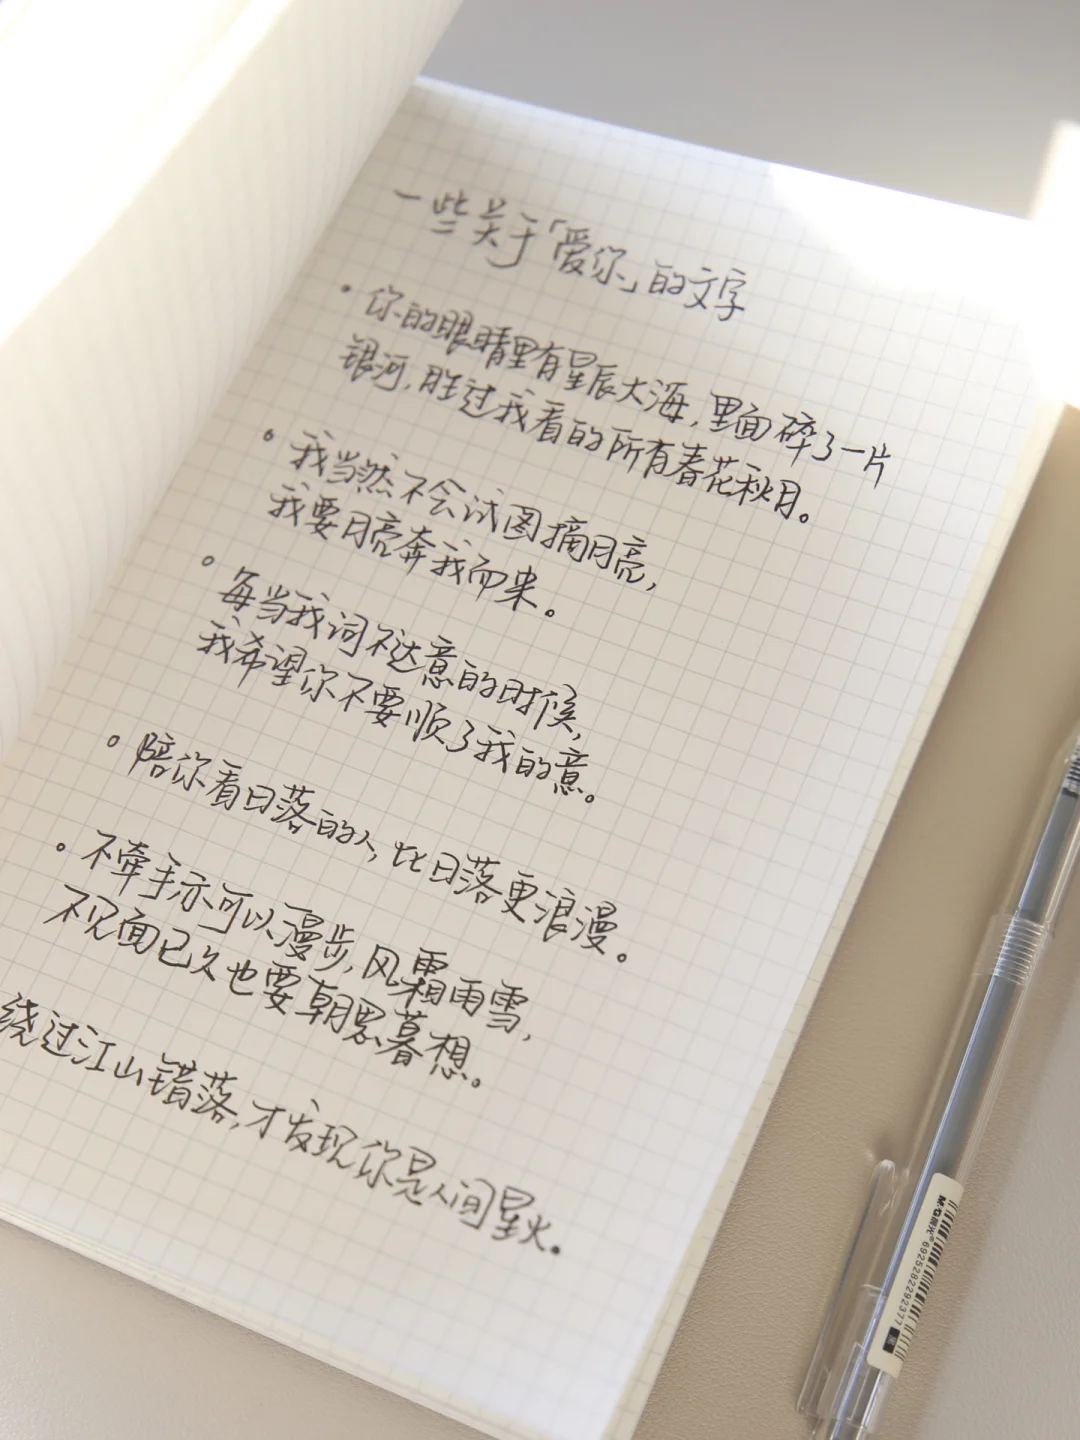 一些关于「爱你」的文字
• 你的眼睛里有星辰大海,里面碎了一片
银河,胜过我看的所有春花秋月。
• 我当然不会试图摘月亮,
我要月亮奔我而来。
• 每当我词不达意的时候,
我希望你不要顺了我的意。
• 陪你看日落的人,比日落更浪漫。
• 不牵手亦可以漫步,风霜雨雪,
不见面已久也要朝思暮想。
绕过江山错落,才发现你是人间星火。
M&G晨光® 6925282292377 黑